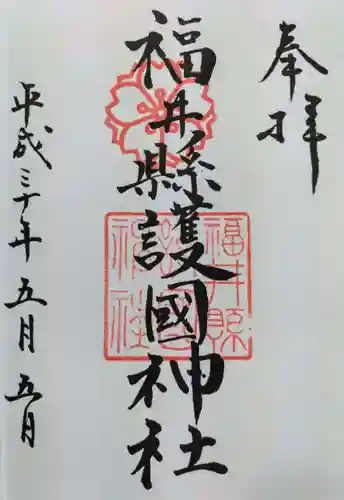 奉拝
福井縣護國神社
平成三十年五月五月
福井縣護國神社